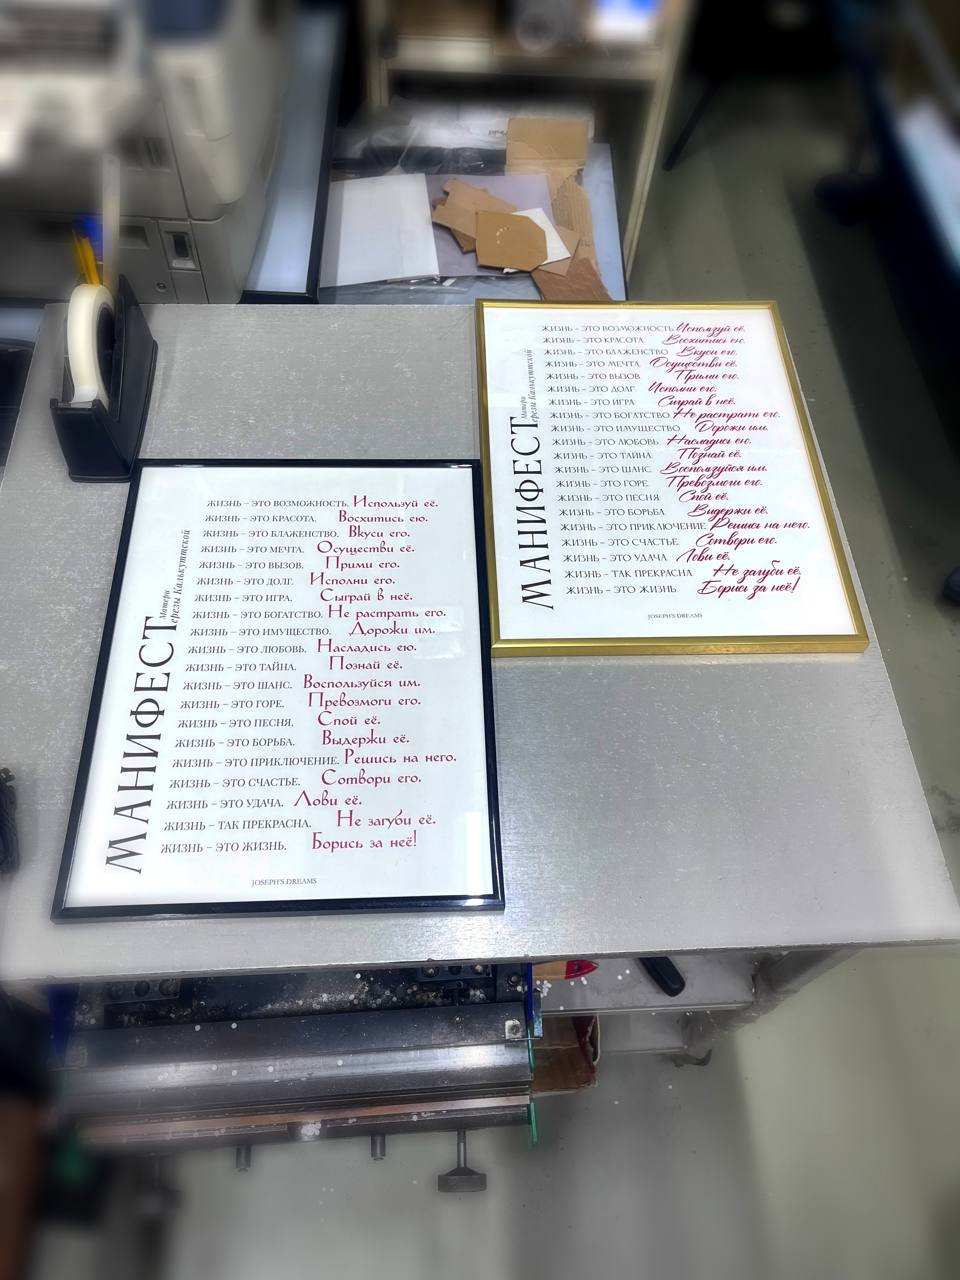 МАНИФЕСТ
Матери
ерезы Калькуттской
ЖИЗНЬ – ЭТО ВОЗМОЖНОСТЬ. Используй её.
ЖИЗНЬ – ЭТО КРАСОТА. Восхитись ею.
ЖИЗНЬ – ЭТО БЛАЖЕНСТВО. Вкуси его.
ЖИЗНЬ – ЭТО МЕЧТА. Осуществи её.
ЖИЗНЬ – ЭТО ВЫЗОВ. Прими его.
ЖИЗНЬ – ЭТО ДОЛГ. Исполни его.
ЖИЗНЬ – ЭТО ИГРА. Сыграй в неё.
ЖИЗНЬ – ЭТО БОГАТСТВО. Не растрать его.
ЖИЗНЬ – ЭТО ИМУЩЕСТВО. Дорожи им.
ЖИЗНЬ – ЭТО ЛЮБОВЬ. Насладись ею.
ЖИЗНЬ – ЭТО ТАЙНА. Познай её.
ЖИЗНЬ – ЭТО ШАНС. Воспользуйся им.
ЖИЗНЬ – ЭТО ГОРЕ. Превозмоги его.
ЖИЗНЬ – ЭТО ПЕСНЯ. Спой её.
ЖИЗНЬ – ЭТО БОРЬБА. Выдержи её.
ЖИЗНЬ – ЭТО ПРИКЛЮЧЕНИЕ. Решись на него.
ЖИЗНЬ – ЭТО СЧАСТЬЕ. Сотвори его.
ЖИЗНЬ – ЭТО УДАЧА. Лови её.
ЖИЗНЬ – ТАК ПРЕКРАСНА. Не загуби её.
ЖИЗНЬ – ЭТО ЖИЗНЬ. Борись за неё!
JOSEPH'S DREAMS
МАНИФЕСТ
Матери
ерезы Калькуттской
ЖИЗНЬ – ЭТО ВОЗМОЖНОСТЬ Используй её.
ЖИЗНЬ – ЭТО КРАСОТА Восхитись ею.
ЖИЗНЬ – ЭТО БЛАЖЕНСТВО Вкуси его.
ЖИЗНЬ – ЭТО МЕЧТА Осуществи её.
ЖИЗНЬ – ЭТО ВЫЗОВ Прими его.
ЖИЗНЬ – ЭТО ДОЛГ Исполни его.
ЖИЗНЬ – ЭТО ИГРА Сыграй в неё.
ЖИЗНЬ – ЭТО БОГАТСТВО Не растрать его.
ЖИЗНЬ – ЭТО ИМУЩЕСТВО Дорожи им.
ЖИЗНЬ – ЭТО ЛЮБОВЬ Насладись ею.
ЖИЗНЬ – ЭТО ТАЙНА Познай её.
ЖИЗНЬ – ЭТО ШАНС Воспользуйся им.
ЖИЗНЬ – ЭТО ГОРЕ Превозмоги его.
ЖИЗНЬ – ЭТО ПЕСНЯ Спой её.
ЖИЗНЬ – ЭТО БОРЬБА Выдержи её.
ЖИЗНЬ – ЭТО ПРИКЛЮЧЕНИЕ Решись на него.
ЖИЗНЬ – ЭТО СЧАСТЬЕ Сотвори его.
ЖИЗНЬ – ЭТО УДАЧА Лови её.
ЖИЗНЬ – ТАК ПРЕКРАСНА Не загуби её.
ЖИЗНЬ – ЭТО ЖИЗНЬ Борись за неё!
JOSEPH'S DREAMS